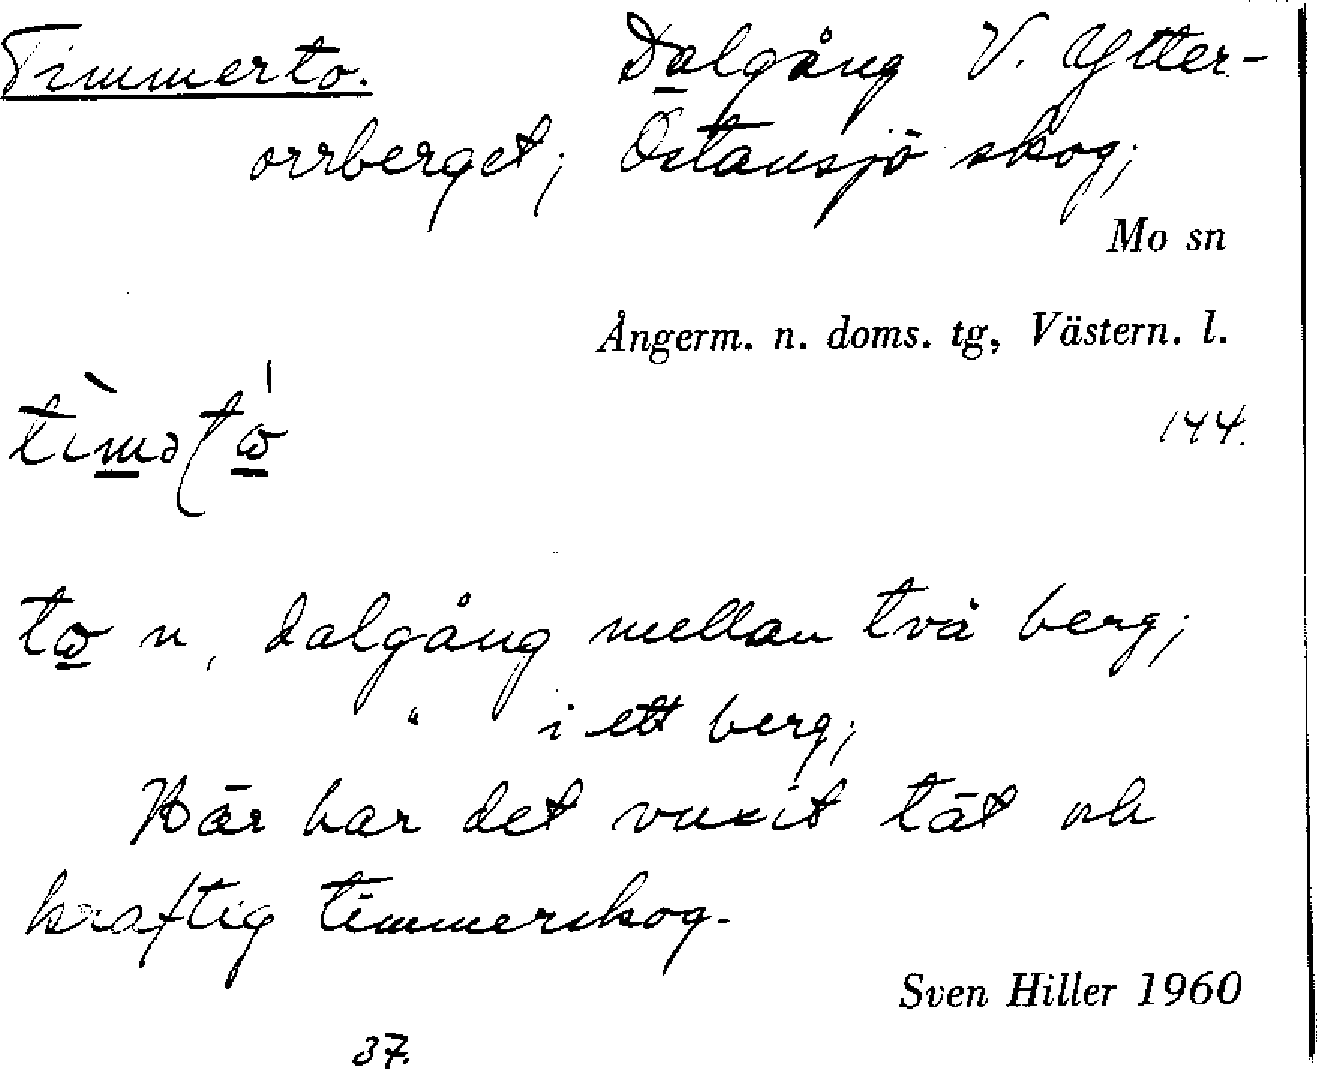 Timmerto. Dalgång V. Ytter-
orrberget; Östansjö skog;
Mo sn
Ångerm. n. doms. tg, Västern. l.
144.
tìmətω̍
tω n, dalgång mellan två berg;
" i ett berg;
Här har det vuxit tät och
kraftig timmerskog.
Sven Hiller 1960
37.